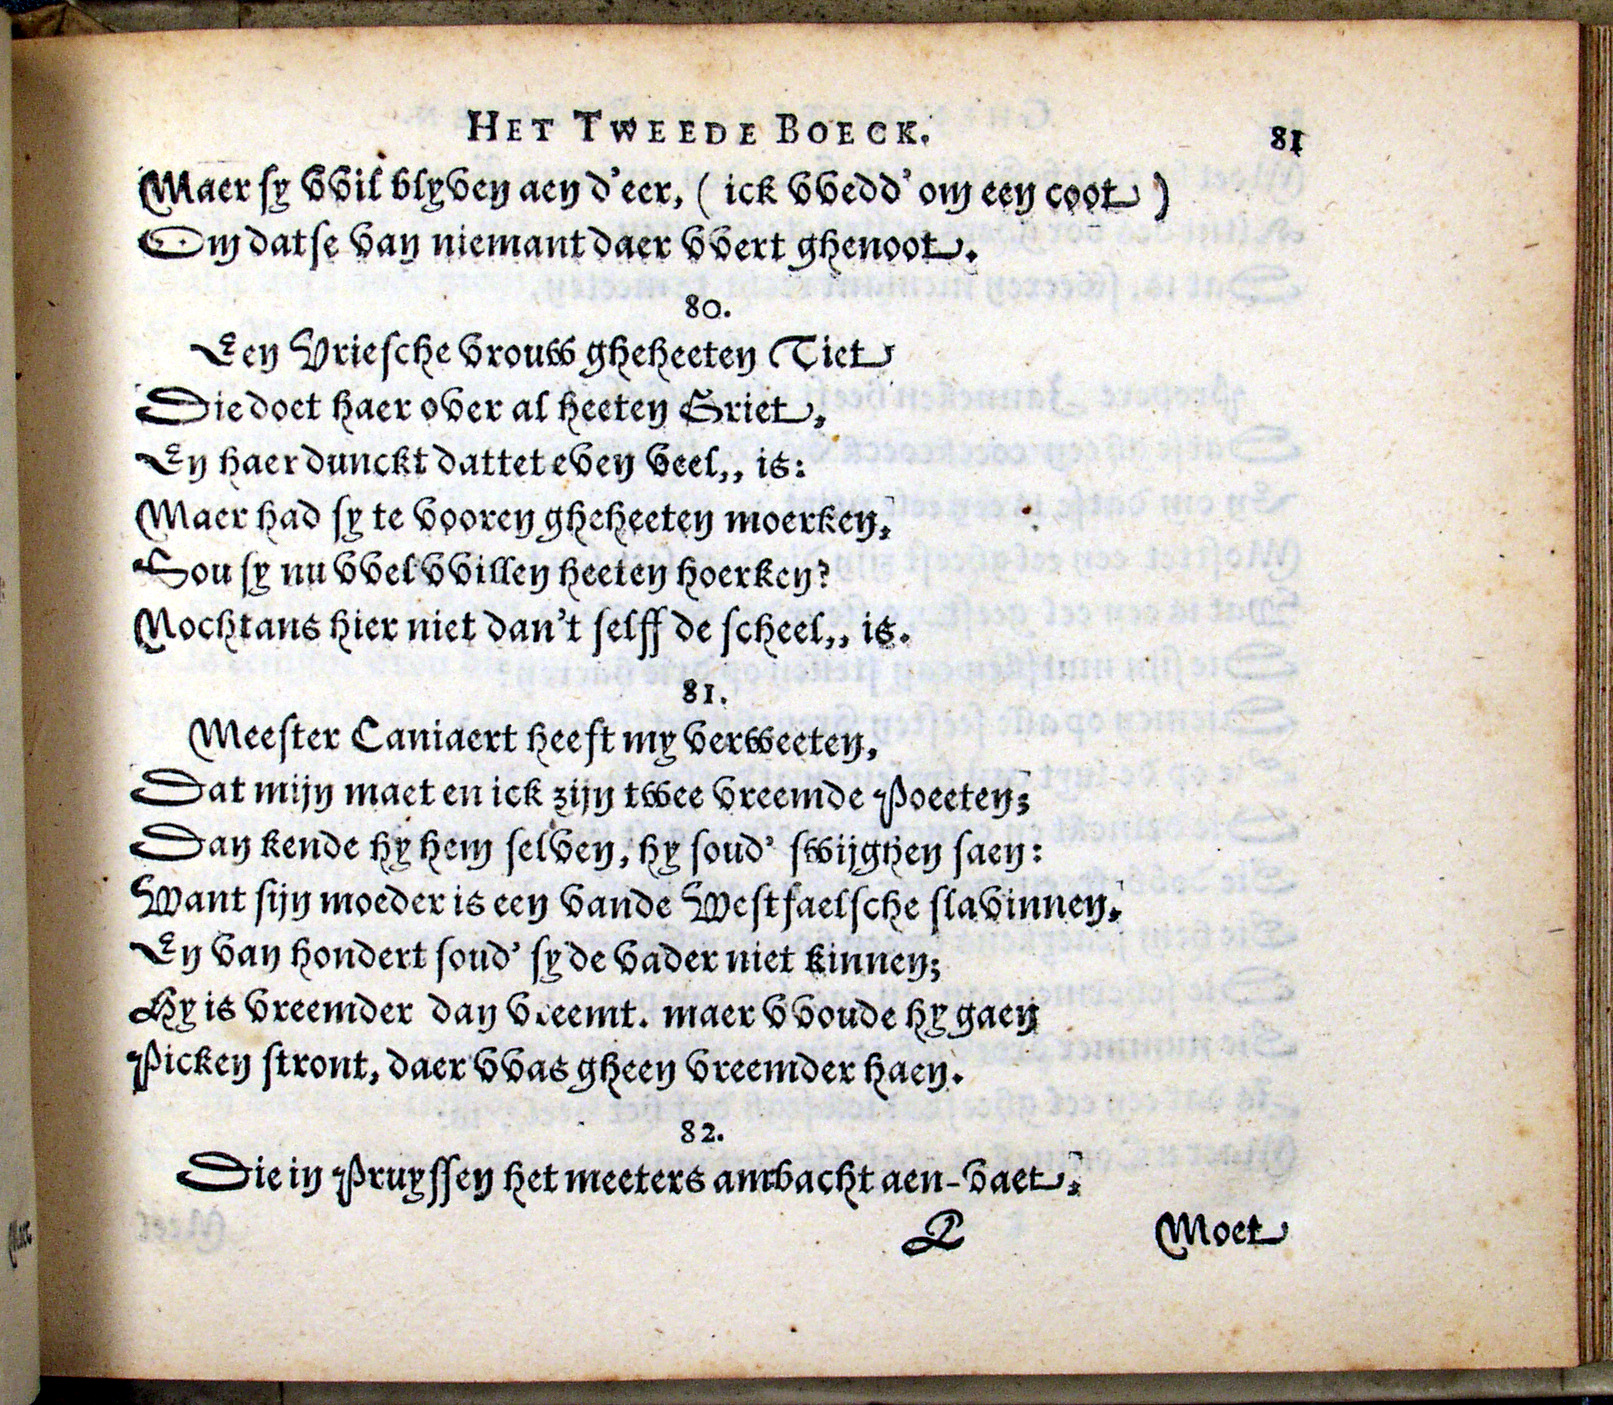 HET TWEEDE BOECK. 81
Maer sy vvil blyven aen d'eer, ( ick vvedd' om een coot )
Om datse van niemant daer vvert ghenoot.
80.
Een Vriesche vrouw gheheeten Tiet
Die doet haer over al heeten Griet,
En haer dunckt dattet even veel,, is:
Maer had sy te vooren gheheeten moerken,
Sou sy nu vvel vvillen heeten hoerken?
Nochtans hier niet dan't selff de scheel,, is.
81.
Meester Caniaert heeft my verweeten,
Dat mijn maet en ick zijn twee vreemde Poeeten;
Dan kende hy hem selven, hy soud' swijghen saen:
Want sijn moeder is een vande Westfaelsche slavinnen,
En van hondert soud' sy de vader niet kinnen;
Hy is vreemder dan vreemt. maer vvoude hy gaen
Picken stront, daer vvas gheen vreemder haen.
82.
Die in Pruyssen het meeters ambacht aen-vaet,
L Moet